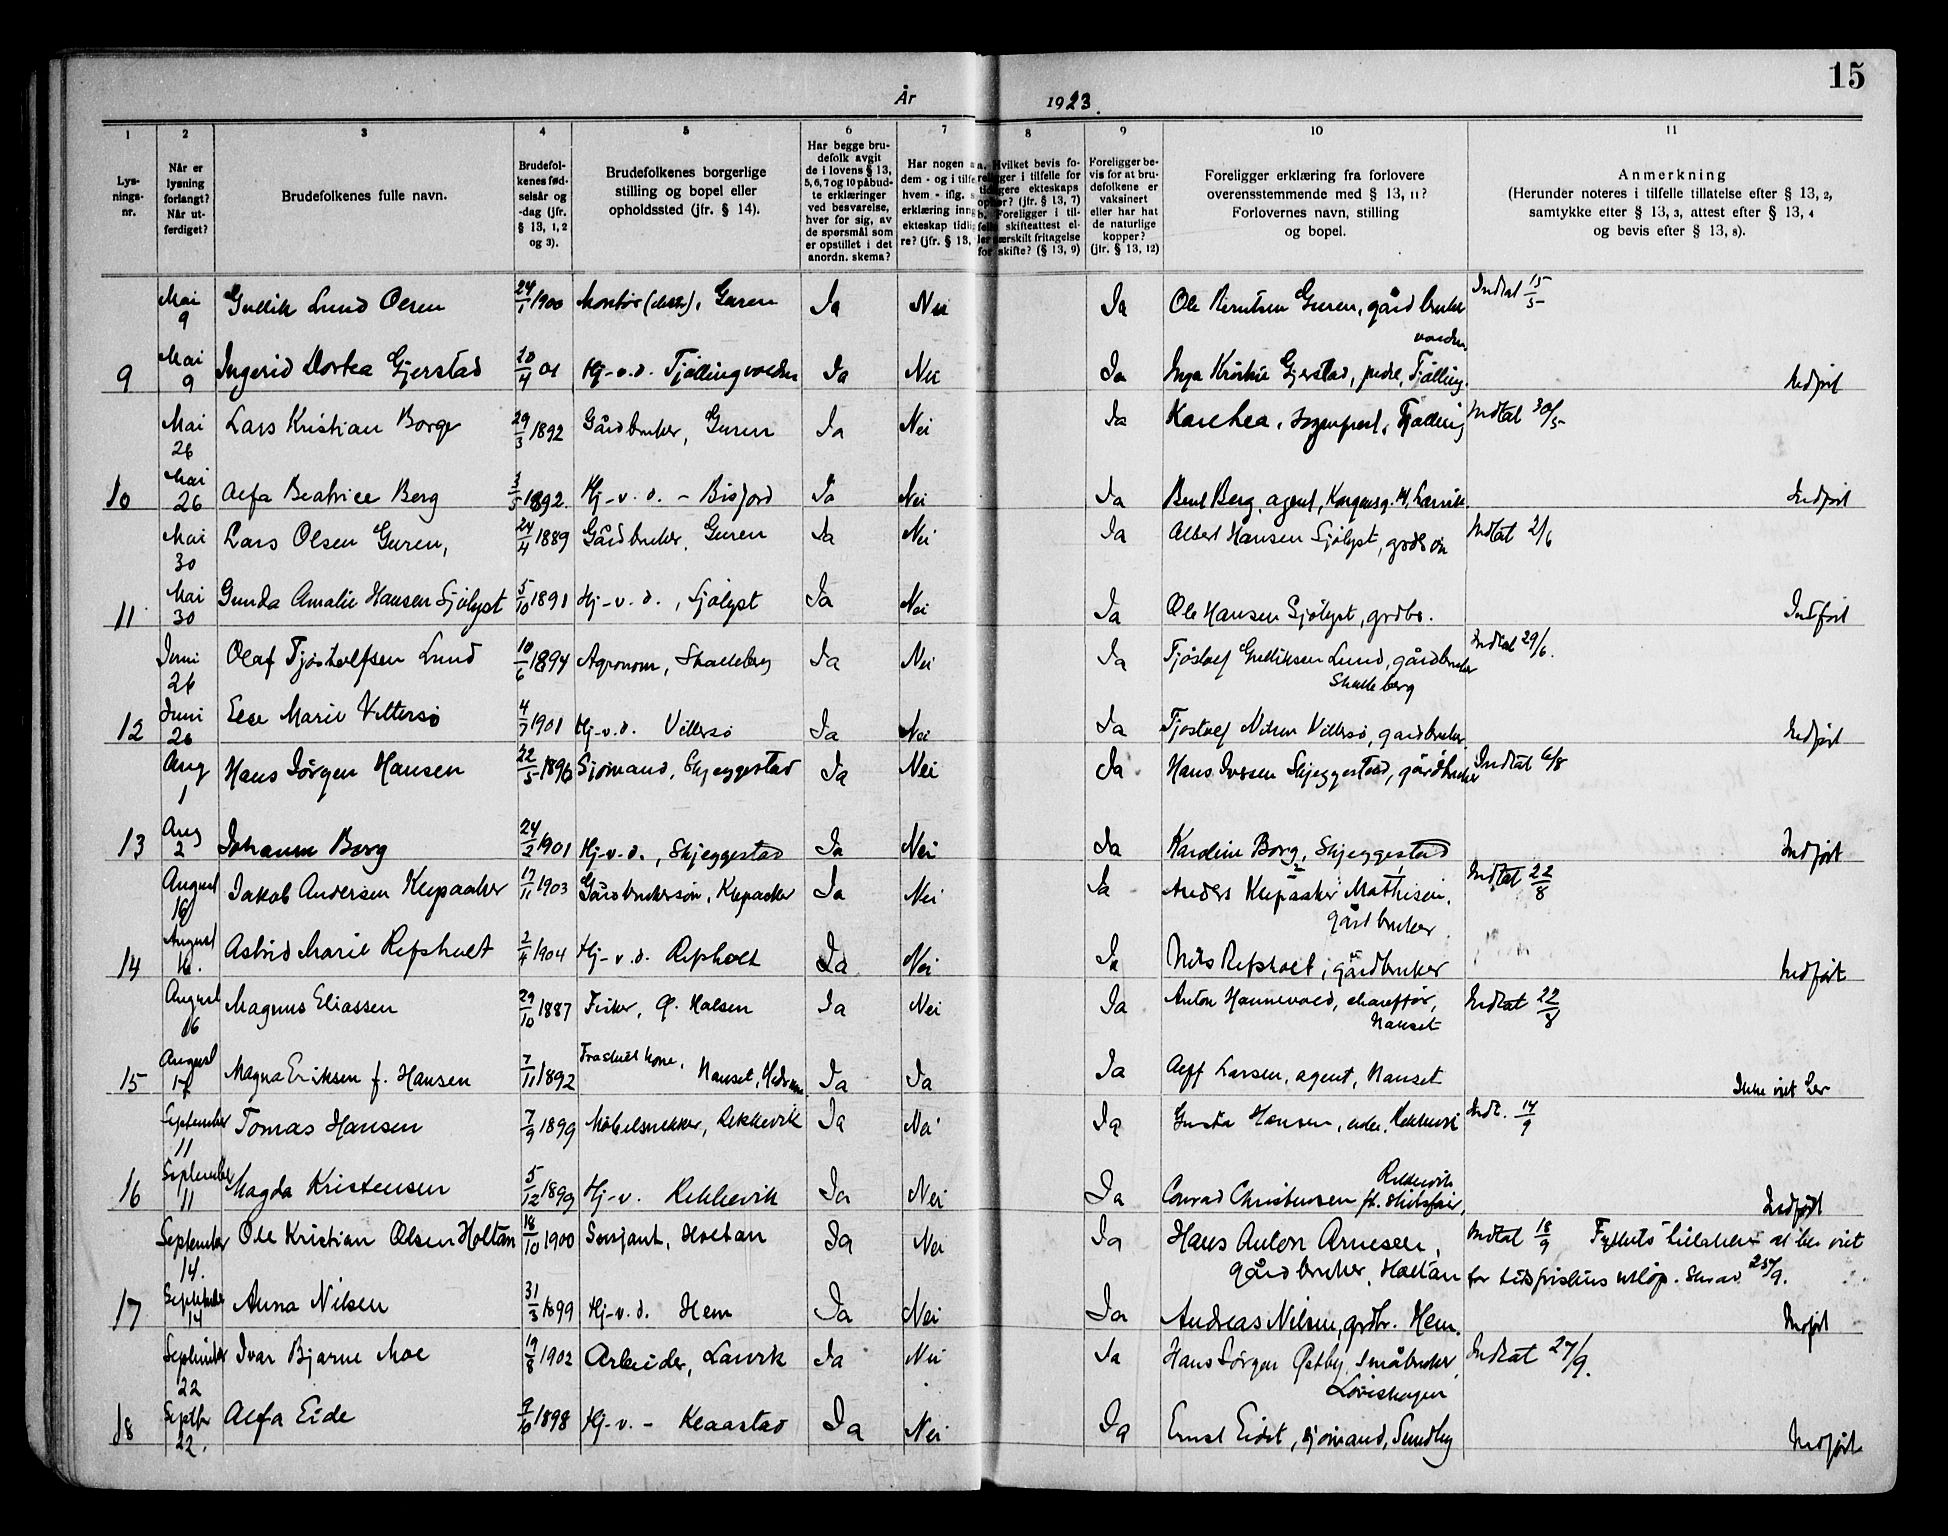 15
År 1923.
1 2 3 4 5 6 7 8 9 10 11
Lysnings-
nr.
Når er
lysning
forlangt?
Når ut-
ferdiget?
Brudefolkenes fulle navn.
Brudefol-
kenes fød-
selsår og
-dag (jfr.
§ 13, 1, 2
og 3).
Brudefolkenes borgerlige
stilling og bopel eller
opholdssted (jfr. § 14).
Har begge bru-
defolk avgit
de i lovens § 13,
5, 6, 7 og 10 påbud-
te erklæringer
ved besvarelse,
hver for sig, av
de spørsmål som
er opstillet i det
anordn. skema?
Har nogen a
dem - og i tilfe
hvem - iflg. s
erklæring inng
ekteskap tidlig
re? (jfr. § 13,
a. Hvilket bevis fo-
religger i tilfelle for
tidligere ekteskaps
ophør? (jfr. § 13, 7)
b. Foreligger i til-
felle skifteattest el-
ler særskilt fritagelse
for skifte? (§ 13, 9)
Foreligger be-
vis for at bru-
defolkene er
vaksinert
eller har hat
de naturlige
kopper?
(jfr. § 13, 12)
Foreligger erklæring fra forlovere
overensstemmende med § 13, 11?
Forlovernes navn, stilling
og bopel.
Anmerkning
(Herunder noteres i tilfelle tillatelse efter § 13, 2,
samtykke efter § 13, 3, attest efter § 13, 4
og bevis efter § 13, 8).
Mai 9 Gullik Lund Olsen 24/1 1900 Montør (elektr), Guren Ja Nei Ja Ole Knutsen Guren, gårdbruker Indtat 15/5
9 Mai 9 Ingerid Dortea Gjerstad 20/4 01 Hj-v.d. Tjøllingvolden Ja Nei Ja Inga Kristine Gjerstad, Tjølling Indført
volden
Mai 26 Lars Kristian Borge 29/3 1892 Gårdbruker, Guren Ja Nei Ja Kare Lea, sogneprest, Tjølling Indtat 30/5
10 Mai 26 Alfa Beatrice Berg 3/5 1892. Hj-v.d. - Bisjord Ja Nei Ja Bent Berg, agent, Larvik. Indført
Mai 30 Lars Olsen Guren, 24/4 1889 Gårdbruker, Guren Ja Nei Ja Albert Hansen Sjølyst, Indtat 2/6
11 Mai 30 Gunda Amalie Hansen Sjølyst 5/10 1891 Hj-v.d., Sjølyst Ja Nei Ja Ole Hansen Sjølyst, grdbr. Indført
Juni 26 Olaf Tjøstolfsen Lund 10/6 1894 Agronom, Skalleberg Ja Nei Ja Tjøstolf Gulliksen Lund, gårdbruker Indtat 29/6.
Skalleberg
12 Juni 26 Else Marie Vittersø 4/7 1901 Hj-v.d. Vittersø Ja Nei Ja Tjøstolf Nilsen Vittersø, gardbruker. Indført
Aug 1 Hans Jørgen Hansen 22/5 1896 Sjømand, Skjeggestad Ja Nei Ja Hans Iversen Skjeggestad, gårdbruker Indtat 6/8
13 Aug 2 Johanne Borg 24/2 1901 Hj-v.d., Skjeggestad Ja Nei Ja Karoline Borg, Skjeggestad Indført
August 16 Jakob Andersen Klepaaker 17/11 1903 Gårdbrukersøn, Klepaaker Ja Nei Ja Anders Klepaaker Mathisen, Indtat 22/8
gårdbruker.
14 August 16. Astrid Marie Refsholt 2/4 1904 Hj-v.d. Refsholt Ja Nei Ja Nils Refsholt, gårdbruker Indført
August 16 Magnus Eliassen 29/10 1887 Fisker, Ø. Halsen Ja Nei Ja Anton Hannevold, chauffør, Indtat 22/8
Nanset
15 August 17 Magna Eriksen f. Hansen 7/11 1892 Fraskilt kone, Nanset, Hedrum Ja Ja Ja Alf Larsen, agent, Nanset Ikke viet her
September 11 Tomas Hansen 7/9 1899 Møbelsnekker, Rekkevik Ja Nei Ja Gusta Hansen, enke, Rekkevik Indt. 14/9
16 September 11 Magda Kristensen 5/12 1899 Hj-v. Rekkevik Ja Nei Ja Conrad Christensen fh. skibsfører, Indført
Rekkevik
September 14. Ole Kristian Olsen Holtan 18/10 1900 Sersjant, Holtan Ja Nei Ja Hans Anton Arnesen, Indtat 18/9 Fylkets tillatelse at bli viet
gårdbruker, Holtan før tidsfristens utløp. Skriv. 25/9.
17 September 14 Anna Nilsen 31/3 1899 Hj-v.d. Hem Ja Nei Ja Andreas Nilsen, grdbr. Hem. Indført
September 22 Ivar Bjarne Moe 19/8 1902 Arbeider, Larvik Ja Nei Ja Hans Jørgen Østby, småbruker, Indtat 27/9.
Løvishagen
18 Septbr 22. Alfa Eide 9/10 1898 Hj-v. - Klaastad Ja Nei Ja Ernst Eidet, sjømand, Sundby Indført